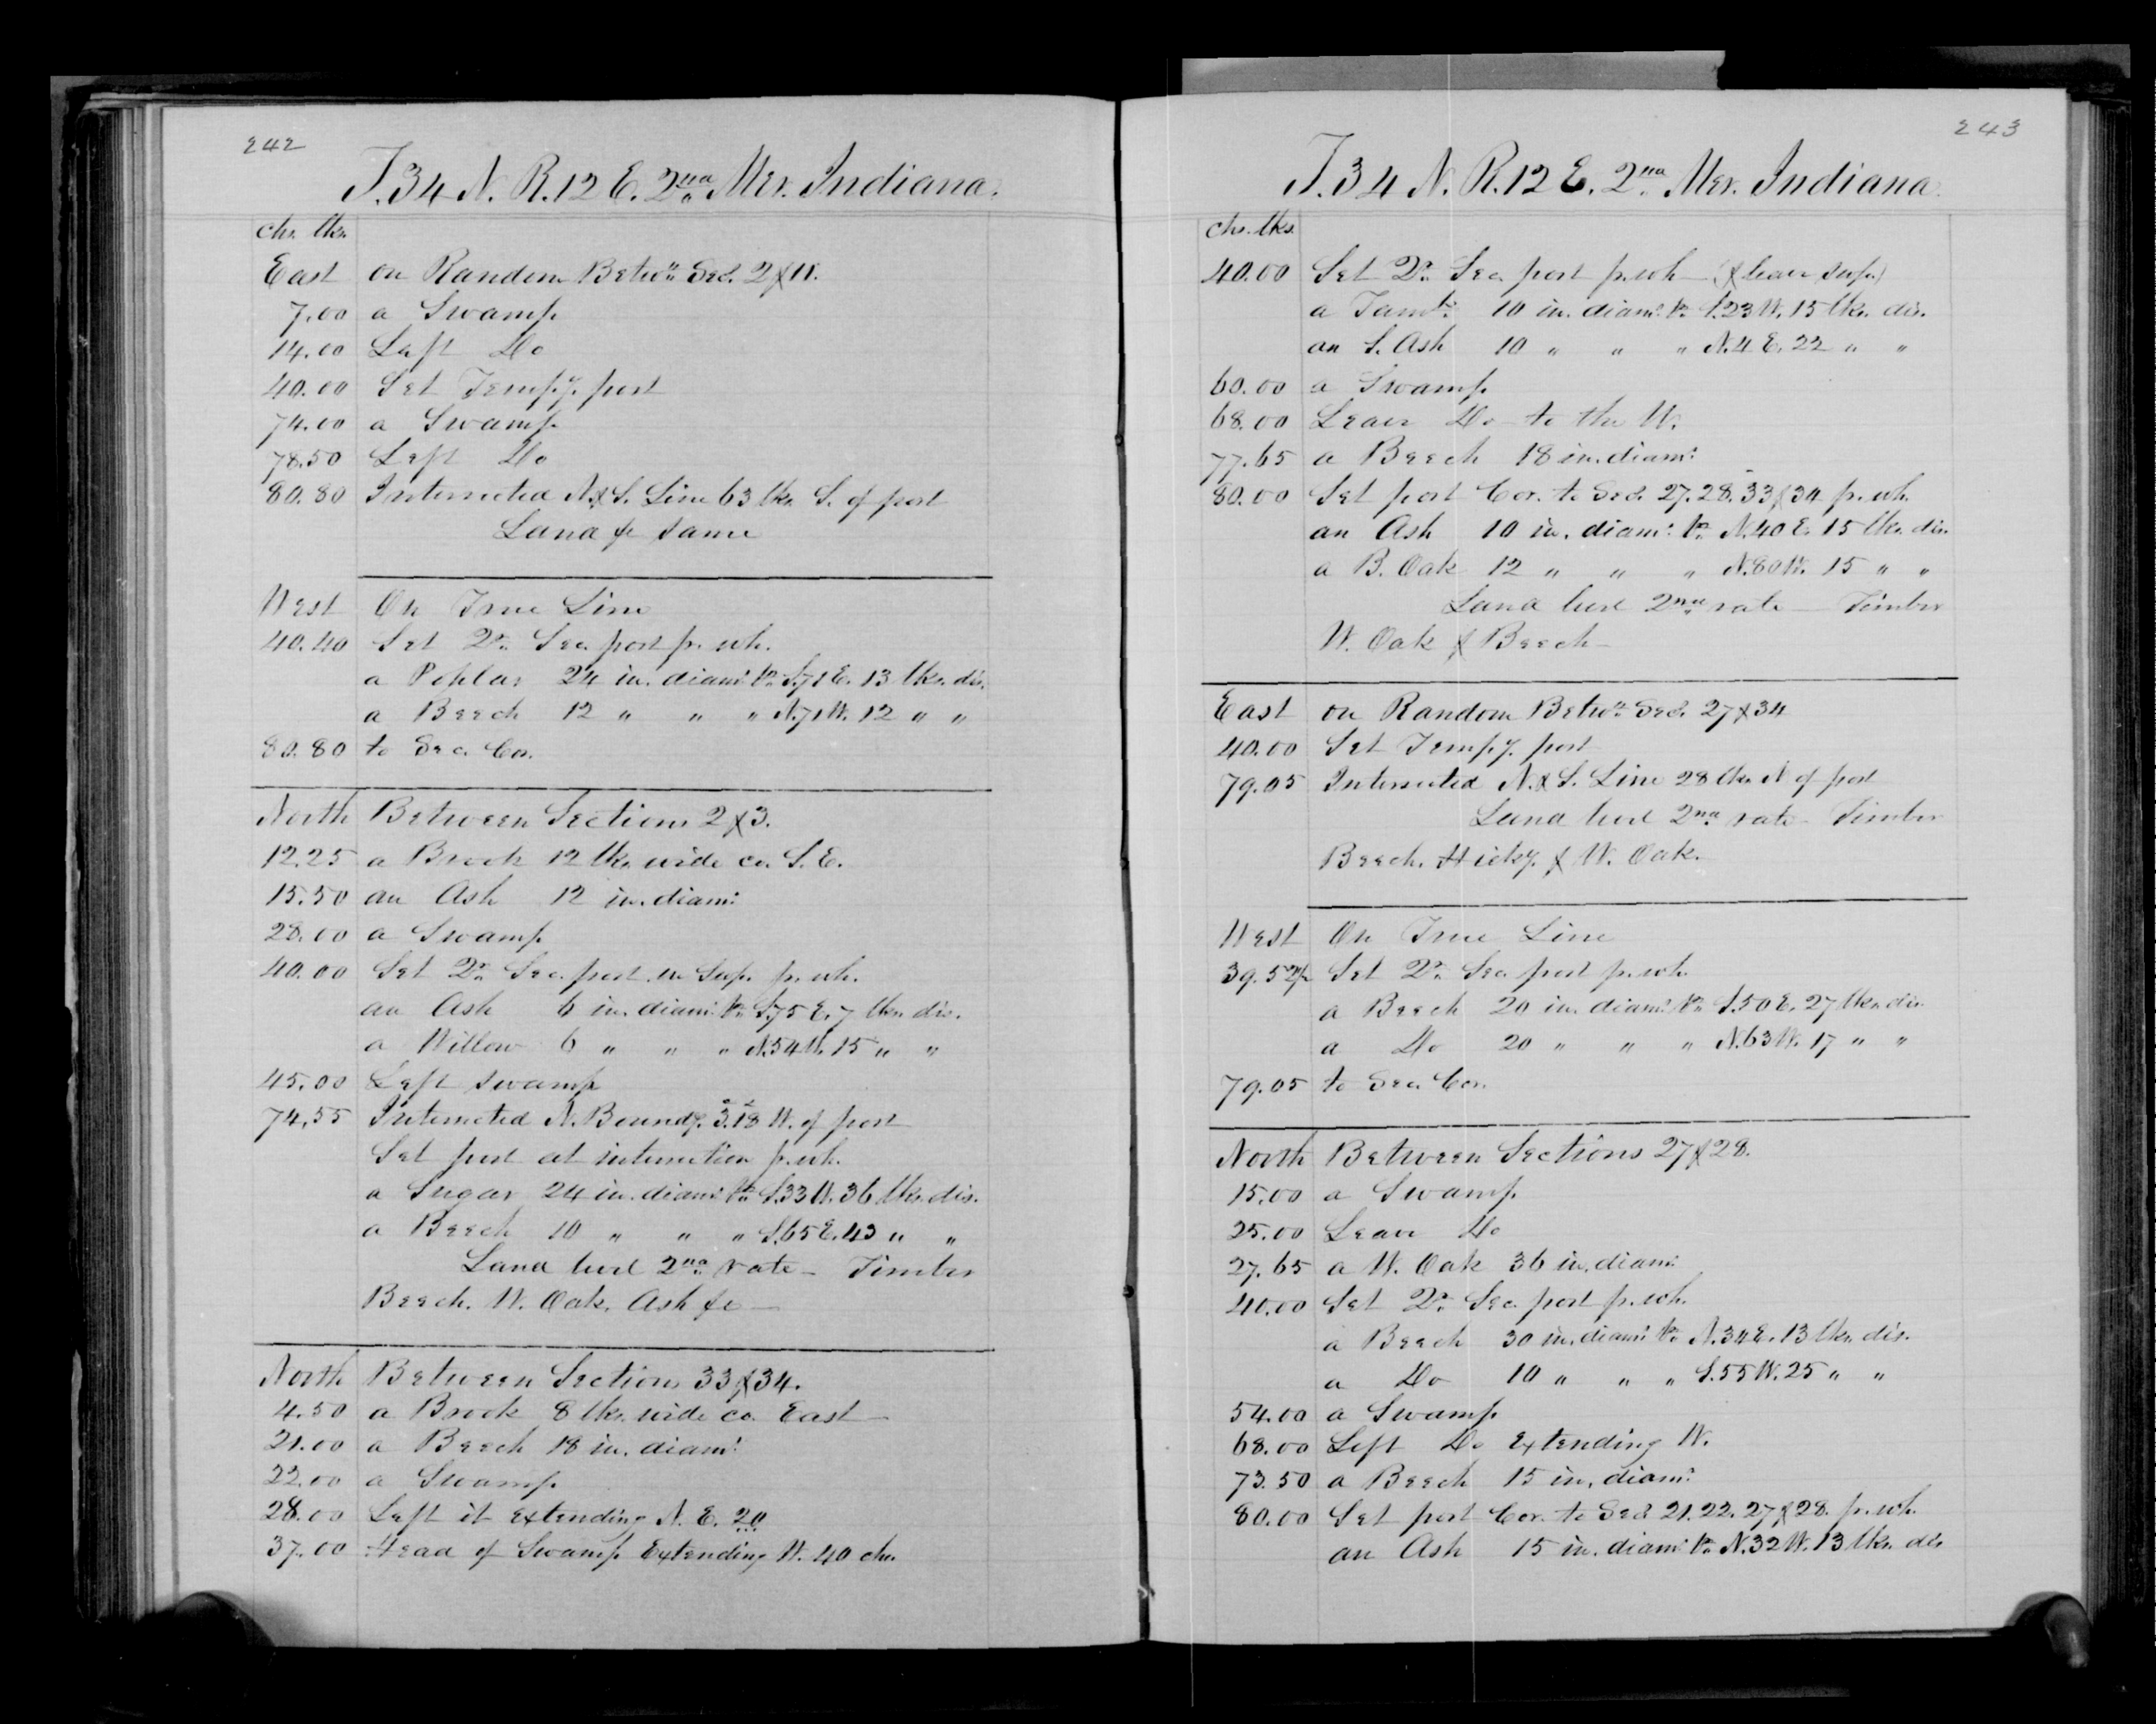 242
T. 34 N. R. 12 E. 2nd Mer. Indiana.
chs. lks.
East on Random Betwn Secs. 2 & 11.
7.00 a Swamp
14.00 Left Do
40.00 Set Tempy. post
74.00 a Swamp
78.50 Left Do
80.80 Intersected N. & S. Line 63 lks. S. of post
Land &c same
West On True Line
40.40 Set Qr. Sec. post fr. wh.
a Poplar 24 in. diamr. brs. S. 71 E. 13 lks. dis.
a Beech 12 " " " N. 71 W. 12 " "
80.80 to Sec. Cor.
North Between Sections 2 & 3.
12.25 a Brook 12 lks. wide co. S. E.
15.50 an Ash 12 in. diamr.
28.00 a Swamp
40.00 Set Qr. Sec. post in Swp. fr. wh.
an Ash 6 in. diamr. brs. S. 75 E. 7 lks. dis.
a Willow 6 " " " N. 54 W. 15 " "
45.00 Left swamp
74.55 Intersected N. Boundy. 3.18 W. of post
Set post at intersection fr. wh.
a Sugar 24 in. diamr. brs. S. 33 W. 36 lks. dis.
a Beech 10 " " " S. 65 E. 43 " "
Land level 2nd rate — Timber
Beech. W. Oak. Ash &c —
North Between Sections 33 & 34.
4.50 a Brook 8 lks. wide co. East —
21.00 a Beech 18 in. diamr.
22.00 a Swamp
28.00 Left it Extending N. E. 20
37.00 Head of Swamp Extending W. 40 chs.
243
T. 34 N. R. 12 E. 2nd Mer. Indiana.
chs. lks.
40.00 Set Qr. Sec. post fr. wh — (& leave swp.)
a 10 in. diamr. brs. S. 23 W. 15 lks. dis.
an S. Ash 10 " " " N. 4 E. 22 " "
60.00 a Swamp
68.00 Leave Do to the W.
77.65 a Beech 18 in. diamr.
80.00 Set post Cor. to Secs. 27. 28. 33 & 34 fr. wh.
an Ash 10 in. diamr. brs. N. 40 E. 15 lks. dis.
a B. Oak 12 " " " N. 80 W. 15 " "
Land level 2nd rate — Timber
W. Oak & Beech —
East on Random Betwn Secs. 27 & 34
40.00 Set Tempy. post
79.05 Intersected N. & S. Line 28 lks. N of post
Land level 2nd rate — Timber
Beech. Hicky. & W. Oak.
West On True Line
39.52½ Set Qr. Sec. post fr. wh.
a Beech 20 in. diamr. brs. S. 50 E. 27 lks. dis.
a Do 20 " " " N. 63 W. 17 " "
79.05 to Sec. Cor.
North Between Sections 27 & 28.
15.00 a Swamp
25.00 Leave Do
27.65 a W. Oak 36 in. diamr.
40.00 Set Qr. Sec. post fr. wh.
a Beech 30 in. diamr. brs. N. 34 E. 13 lks. dis.
a Do 10 " " " S. 55 W. 25 " "
54.00 a Swamp
68.00 Left Do Extending W.
73.50 a Beech 15 in. diamr.
80.00 Set post Cor. to Secs 21. 22. 27 & 28. fr. wh.
an Ash 15 in. diamr. brs. N. 32 W. 13 lks. dis